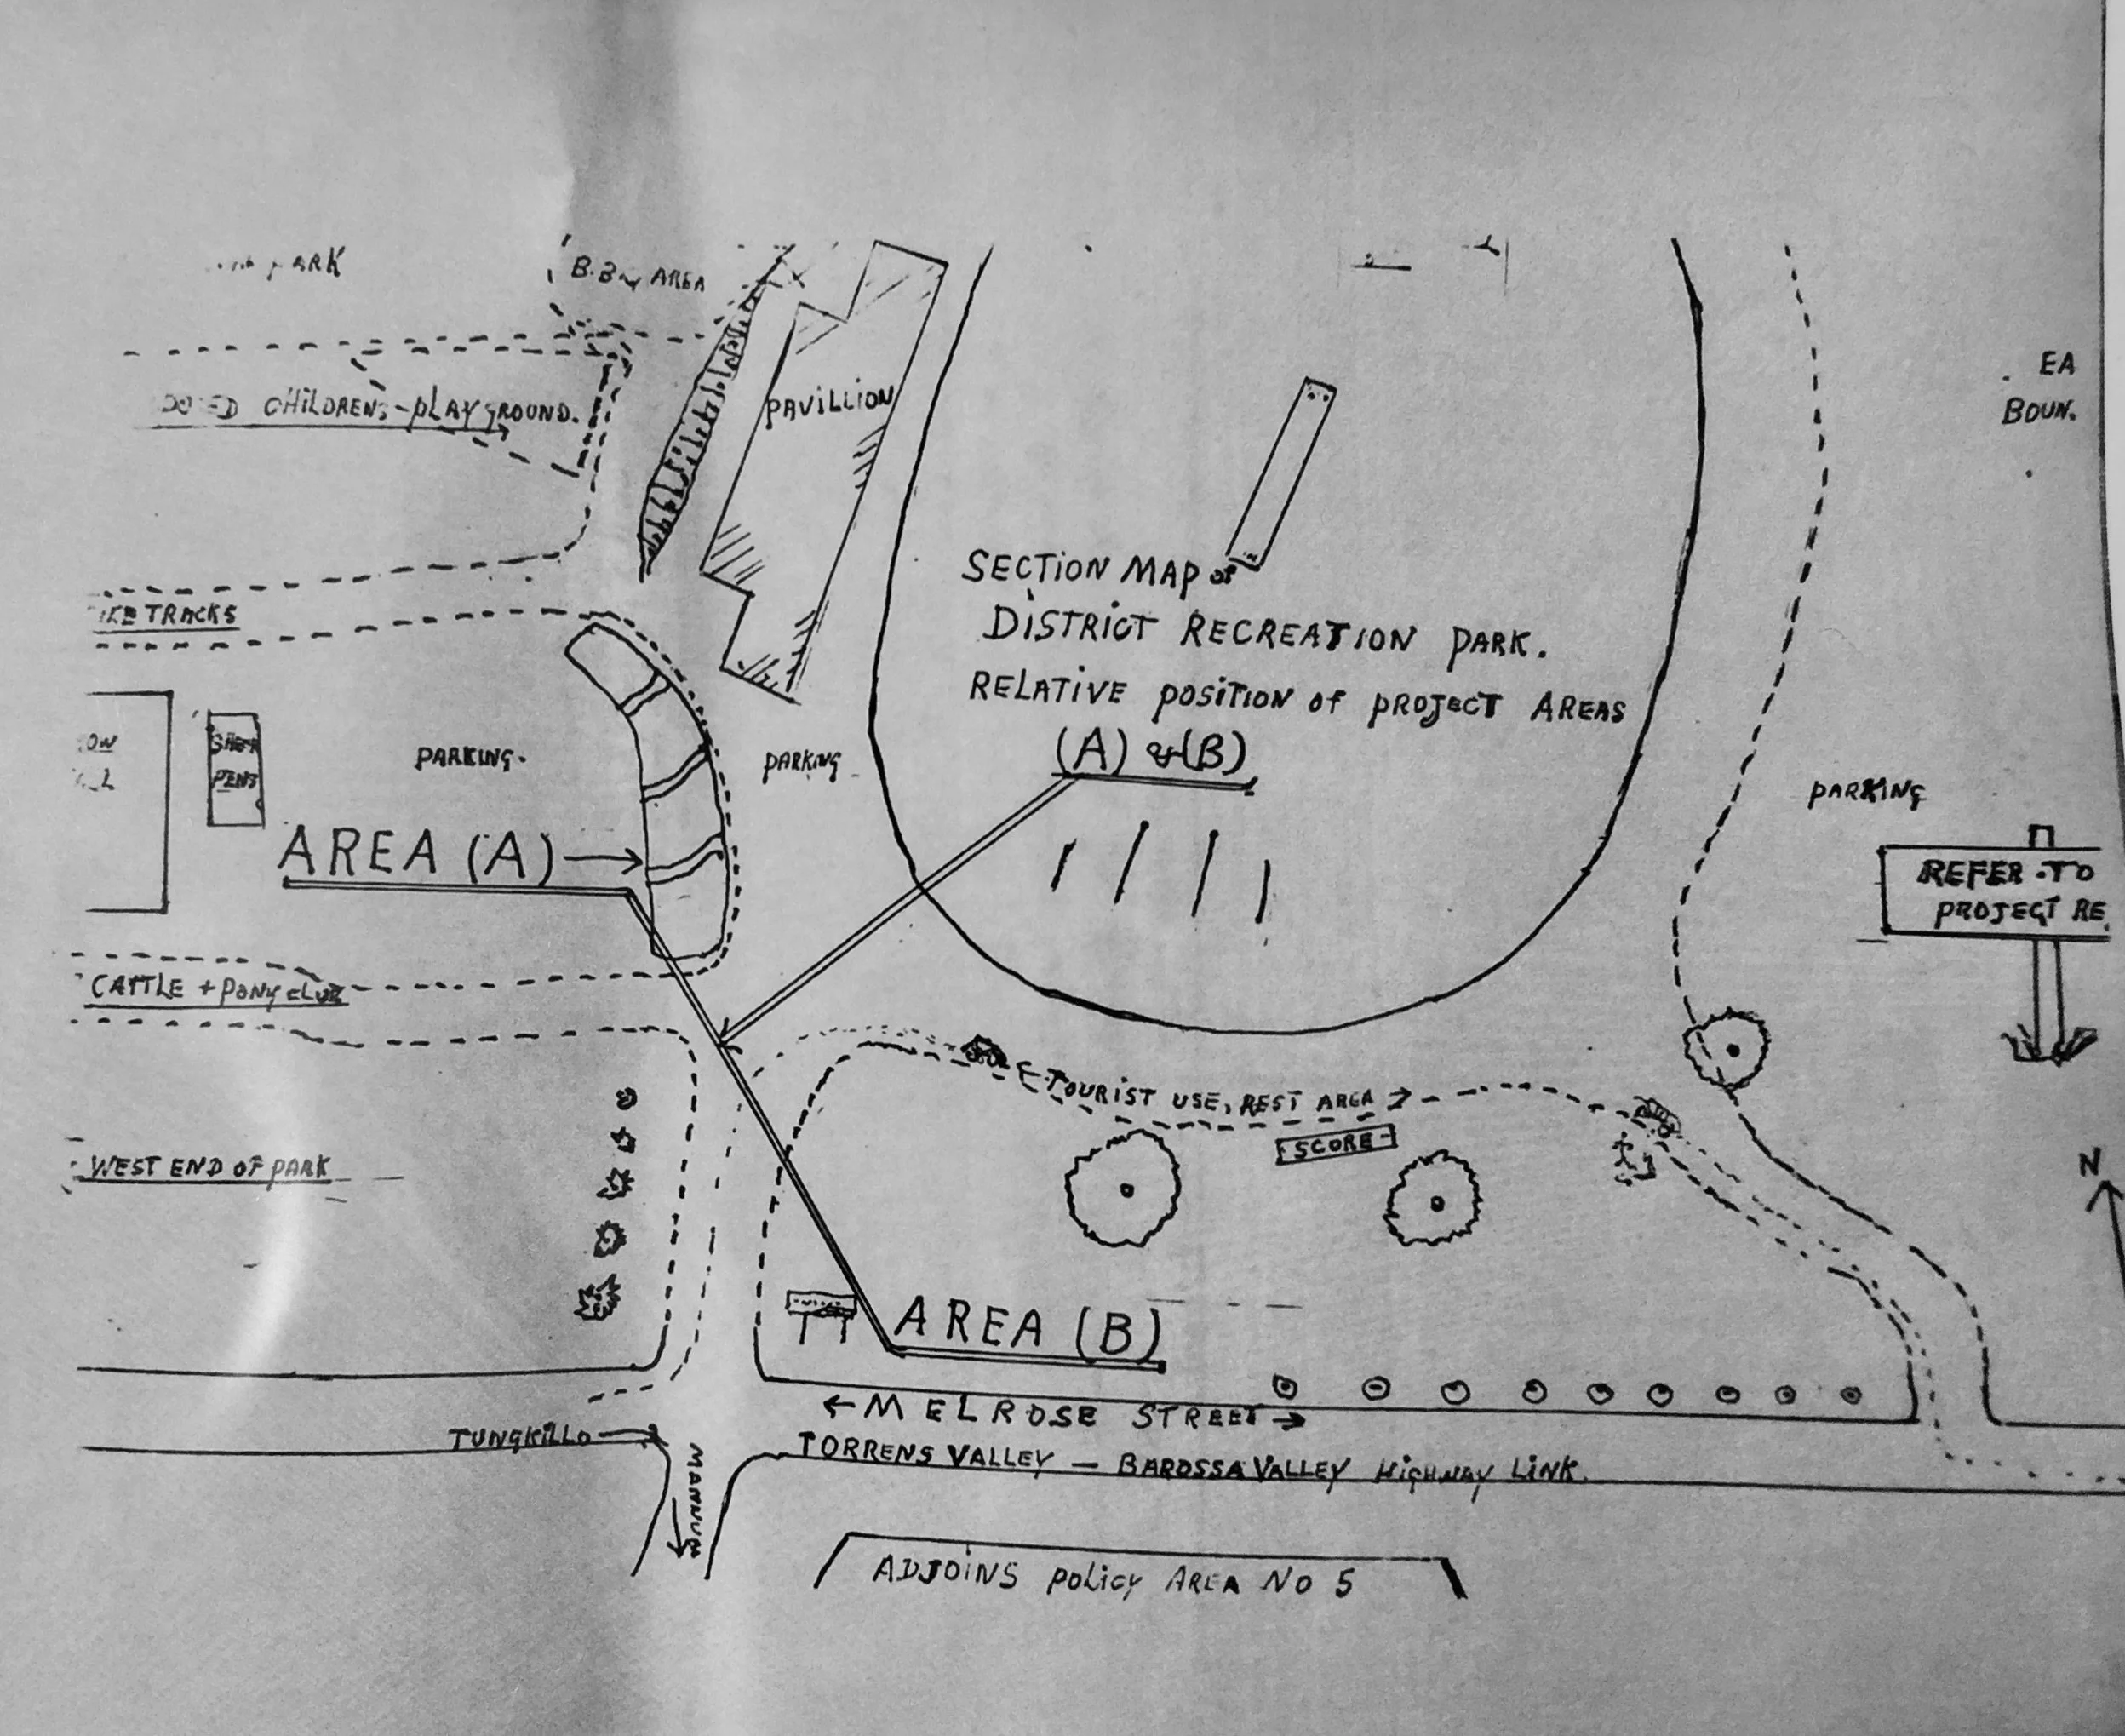 PARK
B.B.Q AREA
CHILDRENS-PLAYGROUND.
PAVILLION
EA
BOUN.
SECTION MAP OF
DISTRICT RECREATION PARK.
RELATIVE POSITION OF PROJECT AREAS
(A) &(B)
TRACKS
PENS
PARKING.
PARKING
PARKING
AREA (A)
REFER.TO
PROJECT RE
CATTLE + PONY CLUB
TOURIST USE, REST AREA
SCORE
WEST END OF PARK
N
AREA (B)
MELROSE STREET
TUNGKILLO
TORRENS VALLEY — BAROSSA VALLEY HIGHWAY LINK.
MANNUM
ADJOINS POLICY AREA NO 5